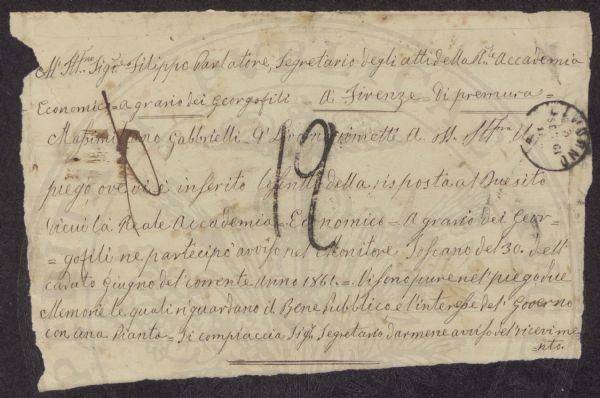 All' Ill.mo Sig.re Filippo Parlatore, Segretario degli atti della R.le Accademia
Economico = Agrario dei Georgofili = A Firenze = Di premura =
Massimiliano Gabbrielli
piego, ove vi è inserito della risposta al Quesito
di cui la Reale Accademia Economico = Agrario dei Geor-
= gofili ne partecipò avviso nel Monitore Toscano del 30. dell'
caduto Giugno del corrente Anno 1861. = Vi sono pure nel piego due
Memorie le quali riguardano il Bene Pubblico e l'interesse del Governo
con una Pianta = Si compiaccia Sig.r Segretario darmene avviso del ricevime-
=nto.
12
LIVORNO